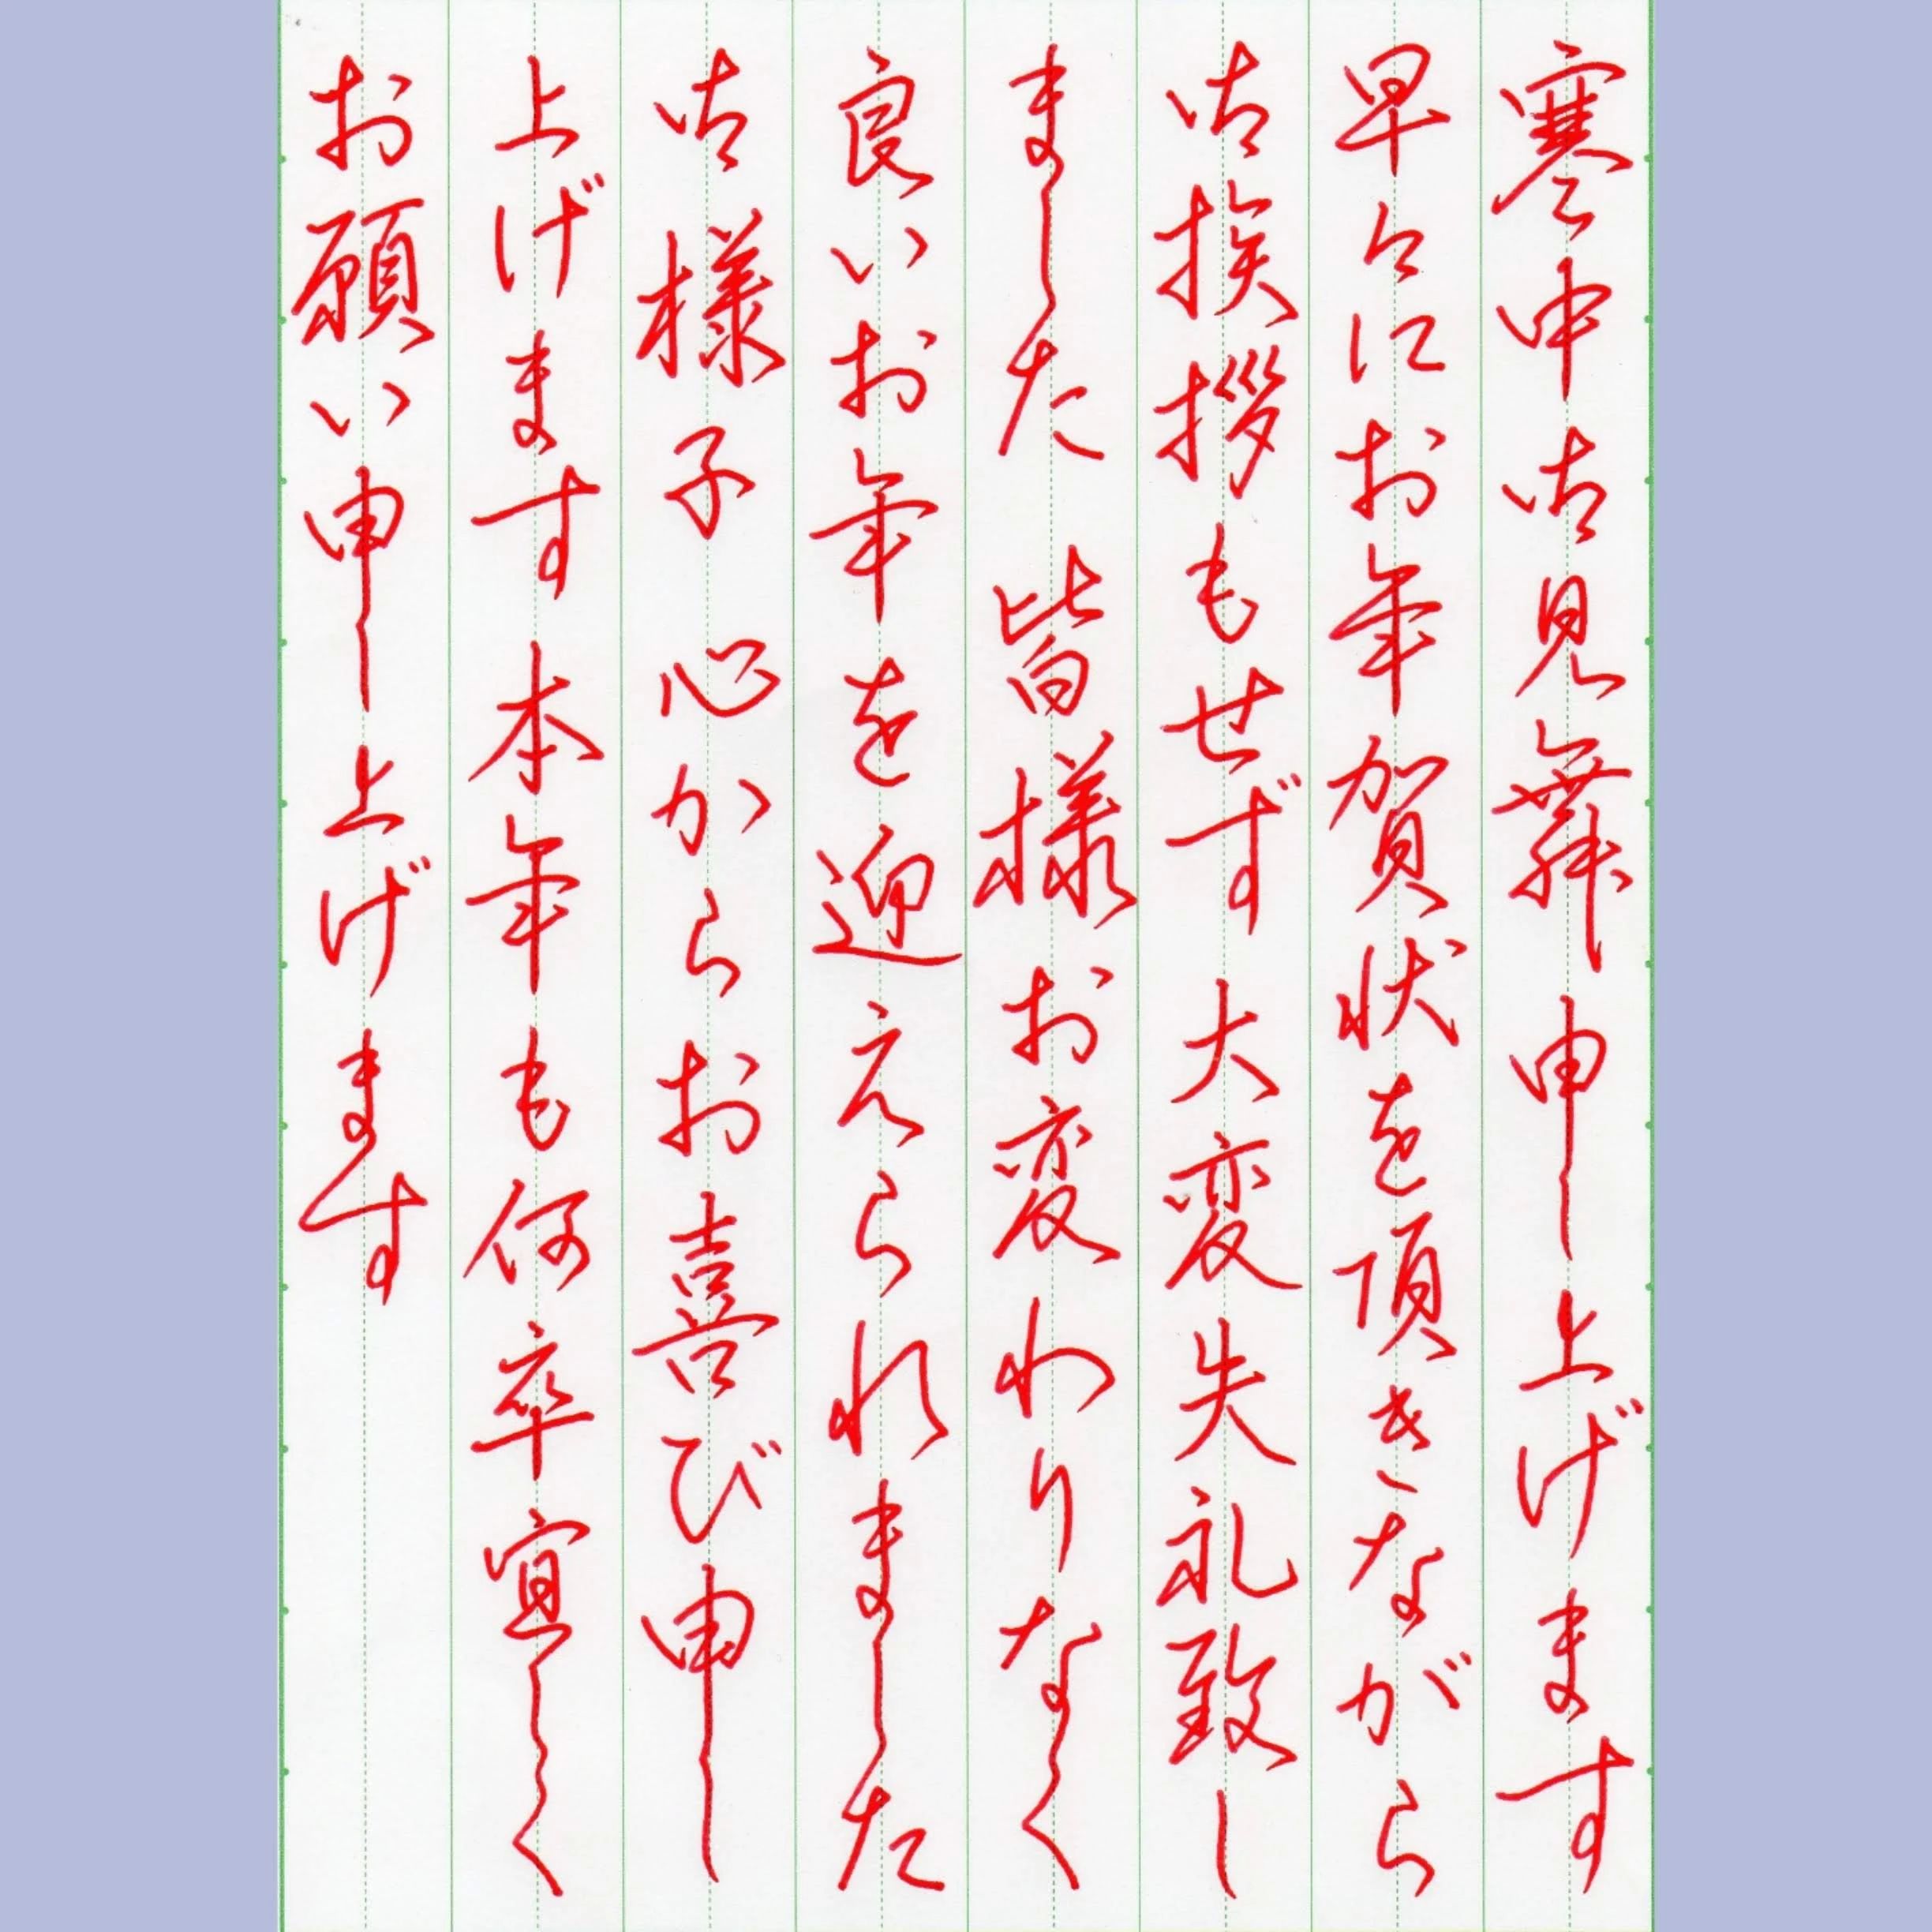 寒中御見舞申し上げます
早々にお年賀状を頂きながら
御挨拶もせず大変失礼致し
ました 皆様お変わりなく
良いお年を迎えられました
御様子 心からお喜び申し
上げます 本年も何卒宜しく
お願い申し上げます